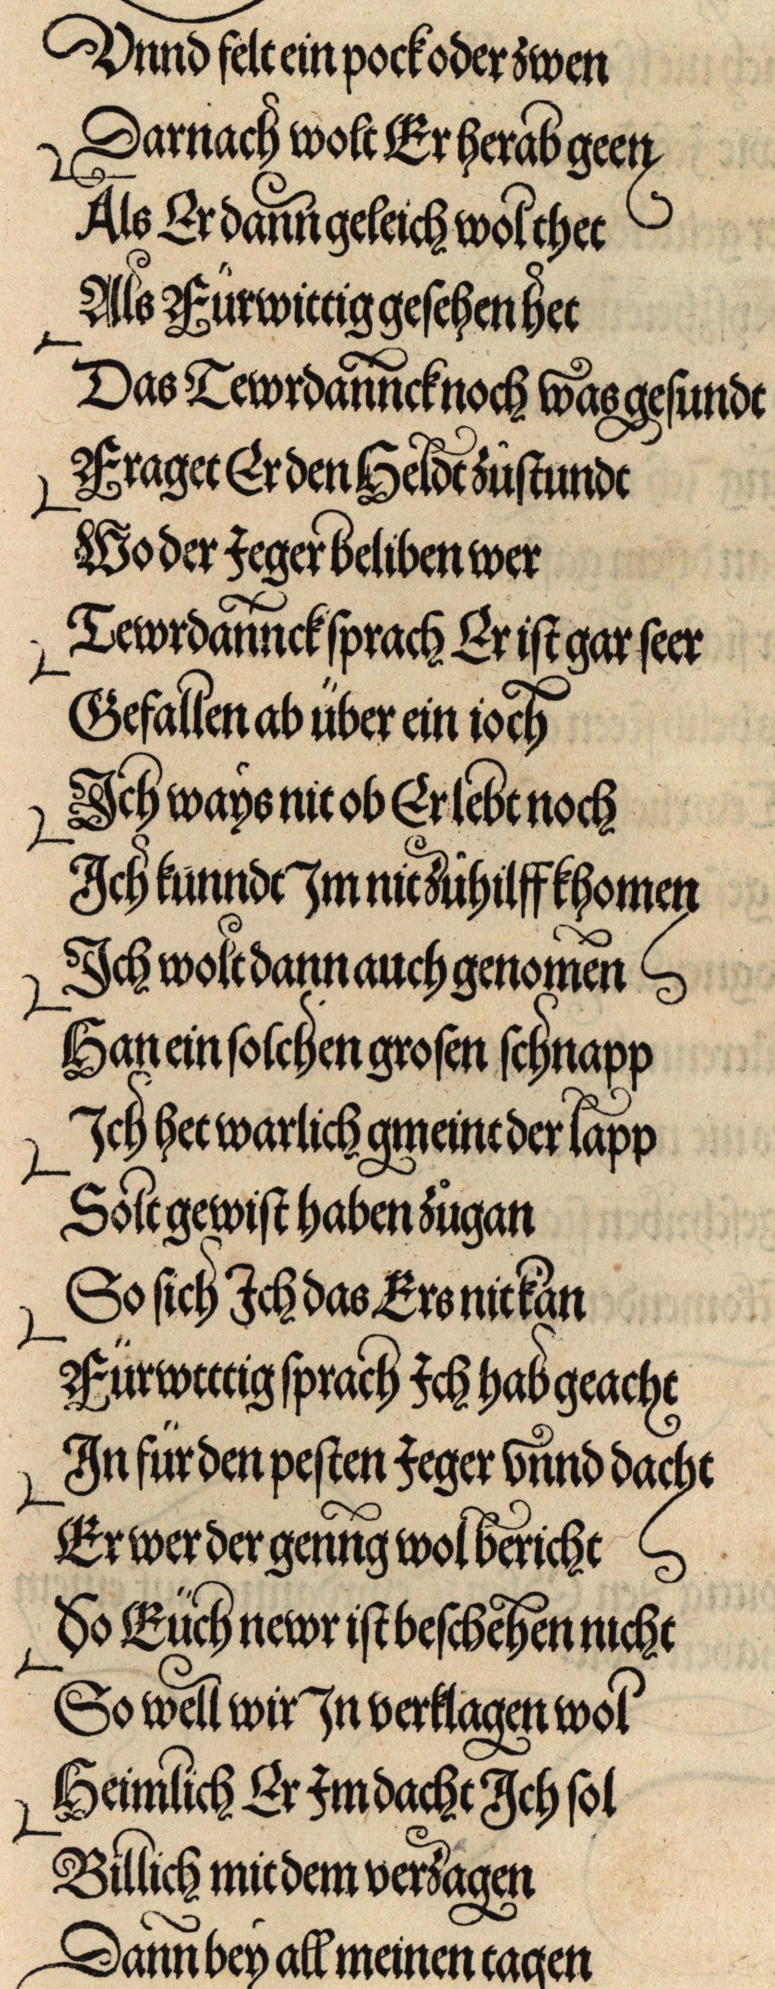 Vnnd felt ein pock oder zwen
Darnach wolt Er herab geen
Als Er dann geleich wol thet
Als Fürwittig gesehen het
Das Tewrdannck noch was gesundt
Fraget Er den Heldt zůstundt
Wo der Jeger beliben wer
Tewrdannck sprach Er ist gar seer
Gefallen ab über ein ioch
Ich ways nit ob Er lebt noch
Ich kunndt Im nit zůhilff khomen
Ich wolt dann auch genomen
Han ein solchen grosen schnapp
Ich het warlich gmeint der lapp
Solt gewist haben zůgan
So sich Ich das Ers nit kan
Fürwtttig sprach Ich hab geacht
In für den pesten Jeger vnnd dacht
Er wer der genng wol bericht
So Eüch newr ist beschehen nicht
So well wir In verklagen wol
Heimlich Er Im dacht Ich sol
Billich mit dem verzagen
Dann bey all meinen tagen